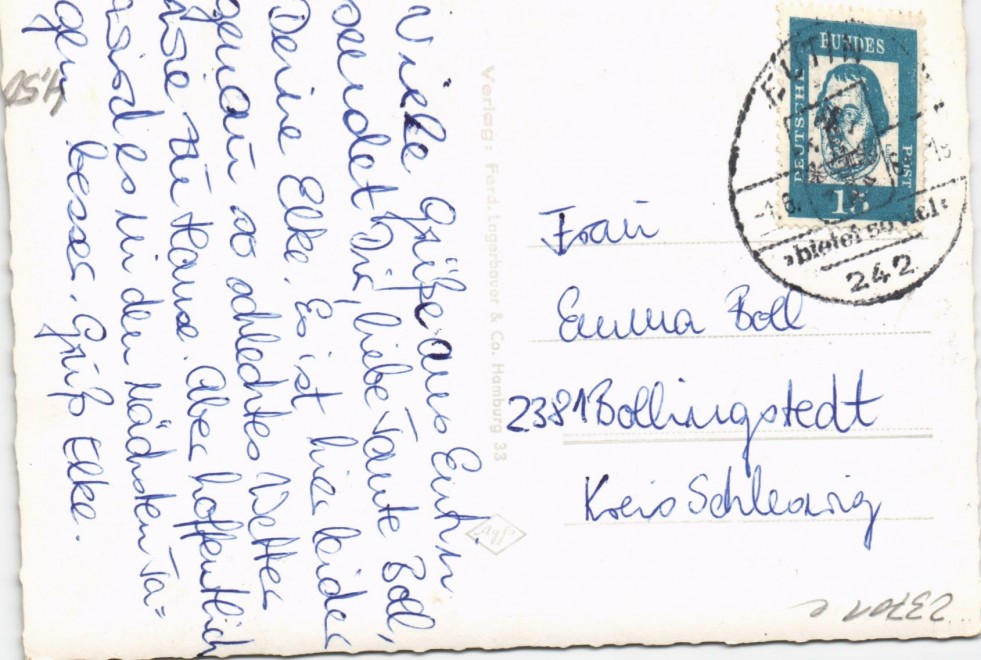 Viele Grüße aus Eutin
sendet Dir, liebe Tante Boll,
Deine Elke. Es ist hier leider
genau so schlechtes Wetter
wie zu Hause. Aber hoffentlich
wird es in den nächsten Ta=
gen besser. Gruß Elke.
4,50
Verlag: Ferd. Lagerbauer & Co. Hamburg 33
Agfa
BUNDES
DEUTSCHE
POST
EUTIN
»bietet so viel«
242
Frau
Emma Boll
2381 Bollingstedt
Kreis Schleswig